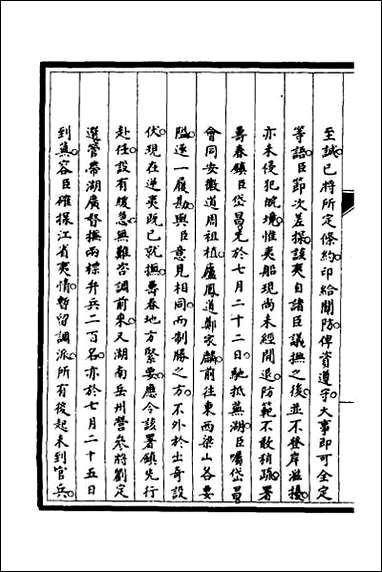 至誠已將所定條約印給關防俾資遵守大事即可全定
等語臣節次差探該夷自諸臣議撫之後並不登岸滋擾
亦未侵犯皖境惟夷船現尚未經開退防範不敢稍疏署
壽春鎮臣岱昌先於七月二十二日馳抵蕪湖臣囑岱昌
會同安徽道周祖植廬鳳道鄭家麟前往東西梁山各要
隘逐一履勘與臣意見相同而制勝之方不外於出奇設
伏現在逆夷既已就撫壽春地方緊要應令該署鎮先行
赴任設有緩急無難咨調前來又湖南岳州營參將劉定
選管帶湖廣督撫兩標升兵二百名亦於七月二十五日
到蕪容臣確探江省夷情暫留調派所有後起未到官兵